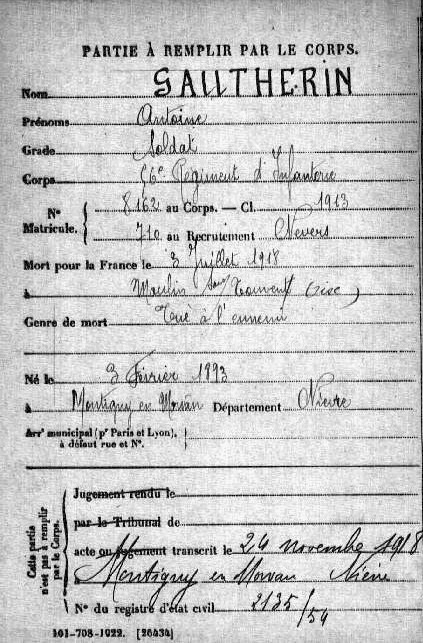 PARTIE À REMPLIR PAR LE CORPS.
Nom SAUTHERIN
Prénoms Antoine
Grade Soldat
Corps Régiment d'Infanterie
N° Matricule. 8162 au Corps. — Cl. 1913
710 au Recrutement Nevers
Mort pour la France le 3 Juillet 1918
à Moulin sous Touvent (Oise)
Genre de mort Tué à l'ennemi
Né le 3 Février 1893
à Montigny en Morvan Département Nièvre
Arrᵗ municipal (pʳ Paris et Lyon),
à défaut rue et N°.
Cette partie n'est pas à remplir par le Corps.
Jugement rendu le
par le Tribunal de
acte ou jugement transcrit le 24 novembre 1918
à Montigny en Morvan Nièvre
N° du registre d'état civil 2135/54
161-708-1922. [26434]